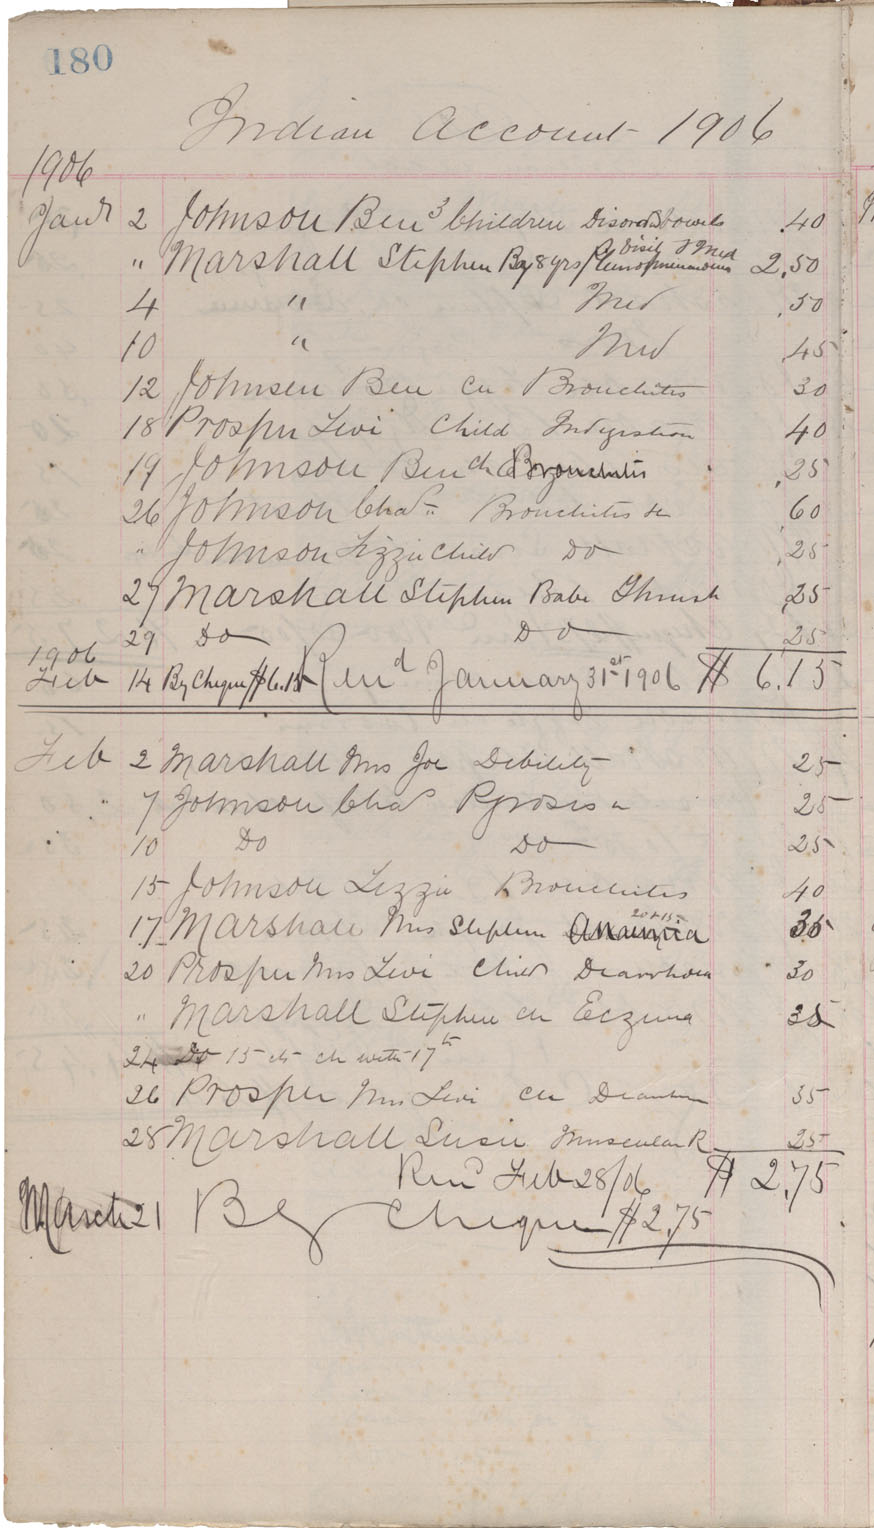 180
Indian Account 1906
1906
Jany 2 Johnson Ben 3 Children Disord Bowels .40
A Visit & Med
" Marshall Stephen Boy 8 yrs / Pleuropneumonia 2.50
4 " Med .50
10 " Med .45
12 Johnson Ben ch Bronchitis 30
18 Prosper Levi Child Indigestion 40
19 Johnson Ben ch Bronchitis .25
26 Johnson Chas Bronchitis .60
" Johnson Lizzie Child Do .25
27 Marshall Stephen Babe Thrush .25
29 Do Do .25
1906
Feb 14 By Cheque $6.15 Rend January 31st 1906 $ 6.15
Feb 2 Marshall Mrs Joe Debility 25
" 7 Johnson Chas Pyrosis 25
10 Do Do 25
15 Johnson Lizzie Bronchitis 40
20+15
17 Marshall Mrs Stephen Anaemia 35
20 Prosper Mrs Levi Child Diarrhoea 30
" Marshall Stephen ch Eczema 35
24 Do 15 ct ch with 17th
26 Prosper Mrs Levi ch Diarrhoea 35
28 Marshall Susie Muscular R 25
Rend Feb 28/06 $ 2.75
March 21 By Cheque $2.75